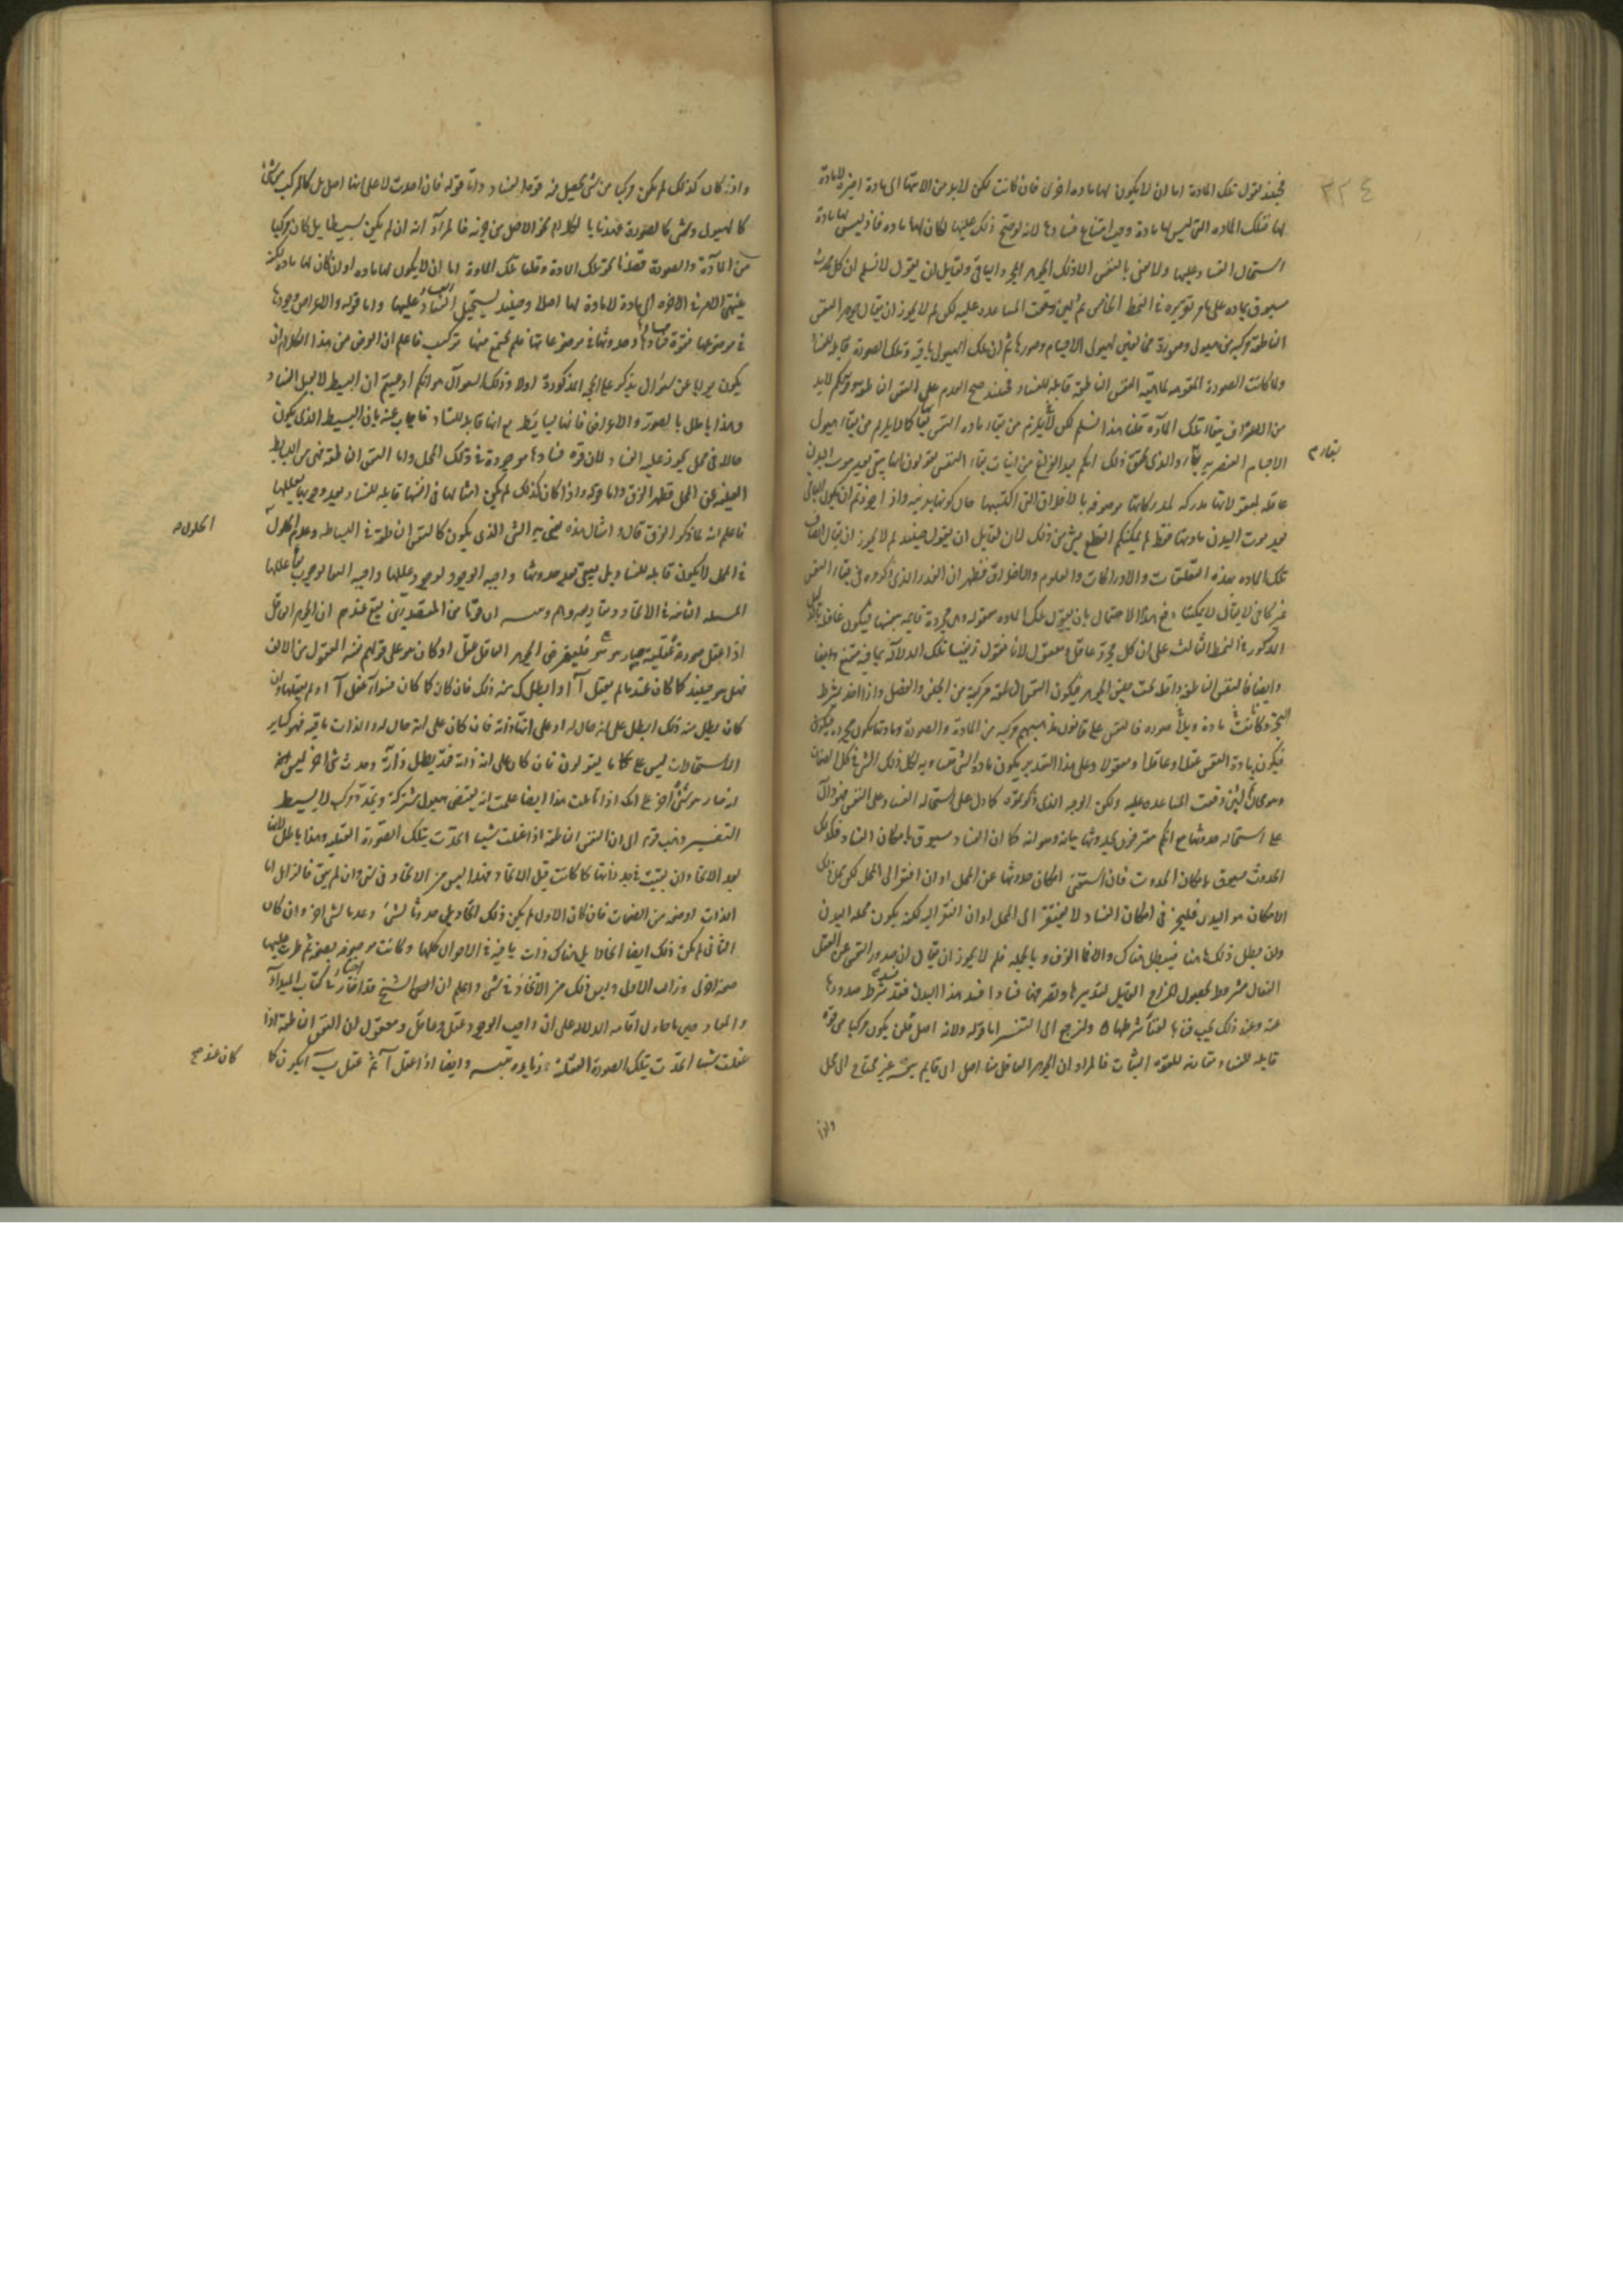 ٢٣٤
فحينئذ نقول تلك المادة اما ان لا يكون لها مادة اخرى فان كانت لكن لا بد من الانتهاء الى مادة اخيرة لا مادة
لها فتلك المادة التى ليس لها مادة وجب امتناع فسادها لانه لو صح ذلك عليها لكان لها مادة فاذ ليس لها مادة
استحال الفساد عليها ولا معنى بالنفس الا ذلك الجوهر المجرد الباقى ولقايل ان يقول لا نسلم ان كل محدث
مسبوق بمادة على ما مر تقريره فى النمط الخامس ثم لئن وقعت المساعدة عليه لكن لم لا يجوز ان يقال جوهر النفس
الناطقة مركبة من هيولى وصورة مخالفتين لهيولى الاجسام وصورها ثم ان تلك الهيولى باقية وتلك الصورة قابلة للفساد
ولما كانت الصورة المقومة لماهية النفس الناطقة قابلة للفساد فحينئذ صح العدم على النفس الناطقة
من الاعتراف ببقاء تلك المادة قلنا هذا مسلم لكن لا يلزم من بقاء مادة النفس بقاؤها كما لا يلزم من بقاء هيولى
الاجسام العنصرية بقاؤها والذى يحقق ذلك انكم بعد الفراغ من اثبات بقاء النفس تقولون انها تبقى بعد موت البدن
عاقلة لمعقولاتها مدركة لمدركاتها موصوفة بالاخلاق التى اكتسبتها حال كونها بدنية واذا جوزتم ان يكون الباقى
بعد موت البدن مادتها فقط لم يمكنكم القطع بشىء من ذلك لان لقايل ان يقول حينئذ لم لا يجوز ان يقال
تلك المادة بهذه التعلقات والادراكات والعلوم والاخلاق فظهر ان القدر الذى ذكروه فى بقاء النفس
غير كاف لا يقال لا يمكننا دفع هذا الاحتمال بان نقول تلك المادة معقولة وهى مجردة قايمة بنفسها فيكون عاقلة
المذكور فى النمط الثالث على ان كل مجرد عاقل ومعقول لانا نقول
وايضا فالنفس الناطقة داخلة تحت جنس الجوهر فيكون النفس الناطقة مركبة من الجنس والفصل واذا اخذ بشرط
التجرد كانت مادة وصورة فالنفس على قانون مذهبهم مركبة من المادة والصورة
فيكون مادة النفس عقلا وعاقلا ومعقولا وعلى هذا التقدير يكون مادة الشىء مساوية لكل ذلك الشىء فى كل الصفات
وهو محال ثم لئن وقعت المساعدة عليه ولكن الوجه الذى ذكرتموه كما دل على استحالة الفساد على النفس فهو دال
على استحالة حدوثها مع انكم معترفون بحدوثها بيانه وهو انه كما ان الفساد مسبوق بامكان الفساد فكذلك
الحدوث مسبوق بامكان الحدوث فان استغنى امكان حدوثها عن المحل او ان افتقر الى المحل لكن محل ذلك
الامكان هو البدن فليجز فى امكان الفساد لا يفتقر الى المحل او ان افتقر اليه لكنه يكون محله البدن
ولئن بطل ذلك هاهنا فيبطل هناك والا فما الفرق وبالجملة فلم لا يجوز ان يقال ان صدور النفس عن العقل
الفعال مشروط بحصول المزاج القابل لتدبيرها وتصرفها فاذا فسد هذا البدن فقد فسد شرط صدورها
عنه وعند ذلك يجب فناؤها لفناء شرطها ولنرجع الى التفسير اما قوله ولانه اصل فلن يكون مركبا من قوة
قابلة للفساد مقارنة لقوة الثبات فالمراد ان الجوهر العاقل منا اصل اى قايم بنفسه غير محتاج الى محل
واذا
بقاء م
واذا كان كذلك لم يكن مركبا من شىء يحصل فيه قوة الفساد واما قوله فان اخذت لا على انها اصل بل كالمركب من شىء
كالهيولى وشىء كالصورة عمدنا بالكلام نحو الاصل من جزئيه فالمراد انه ان لم يكن بسيطا بل كان مركبا
من المادة والصورة قصدنا نحو تلك المادة وقلنا تلك المادة اما ان لا يكون لها مادة او ان كان لها مادة لكنه
ينتهى الامر فى الاخرة الى مادة لا مادة لها اصلا وحينئذ يستحيل الفساد عليها واما قوله والاعراض وجودها
فى موضوعها فقوة فسادها وحدوثها فى موضوعاتها فلم يجتمع فيها تركيب فاعلم ان الغرض من هذا الكلام ان
يكون جوابا عن سؤال يذكر على الحجة المذكورة اولا وذلك السؤال هو انكم ادعيتم ان البسيط لا يقبل الفساد
وهذا باطل بالصور والاعراض فانها بسايط مع انها قابلة للفساد فاجاب عنه بان البسيط الذى يكون
حالا فى محل يجوز عليه الفساد لان قوة فسادها موجودة فى ذلك المحل واما النفس الناطقة فهى من البسايط
الغنية عن المحل فظهر الفرق واما قوله واذا كان كذلك لم يكن امثال هذه فى انفسها قابلة للفساد بعد وجوبها بعللها
فاعلم انه لما ذكر الفرق قال وامثال هذه يعنى به الشىء الذى يكون كالنفس الناطقة فى البساطة وعدم الحلول
فى المحل لا يكون قابلة للفساد بل يبقى بعد حدوثها واجبة الوجود لوجود عللها واجبة البقا لوجوب بقا عللها
المسئلة الثامنة فى الاتحاد وهم وتنبيه ان قوما من المتصدرين يقع عندهم ان الجوهر العاقل
اذا عقل صورة عقلية صار هو هو فلنفرض الجوهر العاقل عقل ا وكان هو على قولهم بعينه المعقول من الالف
فهل هو حينئذ كما كان عندما لم يعقل ا او بطل منه ذلك فان كان كما كان فسواء عقل ا او لم يعقلها وان
كان بطل منه ذلك ابطل على انه حال له او على انه ذاته فان كان على انه حال له والذات باقية فهو كساير
الاستحالات ليس على ما يقولون فان كان على انه ذاته فقد بطل ذاته وحدث شىء اخر ليس
انه صار هو شيئا اخر على انك اذا تاملت هذا ايضا علمت انه يقتضى هيولى مشتركة وتجدد مركب لا بسيط
التفسير ذهب قوم الى ان النفس الناطقة اذا عقلت شيئا اتحدت بتلك الصورة العقلية وهذا باطل لانها
بعد الاتحاد ان بقيت فى حد ذاتها كما كانت قبل الاتحاد فهذا ليس من الاتحاد فى شىء وان لم يبق فالزايل اما
الذات او صفة من الصفات فان كان الاول لم يكن ذلك اتحادا بل حدوثا لشىء وعدما لشىء اخر وان كان
الثانى لم يكن ذلك ايضا اتحادا بل هناك ذات باقية فى الاحوال كلها وكانت موصوفة بصفة ثم طرت عليها
صفة اخرى وزالت الاولى وليس ذلك من الاتحاد فى شىء واعلم ان الشيخ قد اختار فى كتاب المبدأ
والمعاد حين ما حاول اقامة الدلالة على ان واجب الوجود عقل وعاقل ومعقول ان النفس الناطقة اذا
عقلت شيئا اتحدت بتلك الصورة العقلية زيادة تنبيه وايضا اذا عقل ا ثم عقل ب ايكون كما
الحلول
كان عند ح